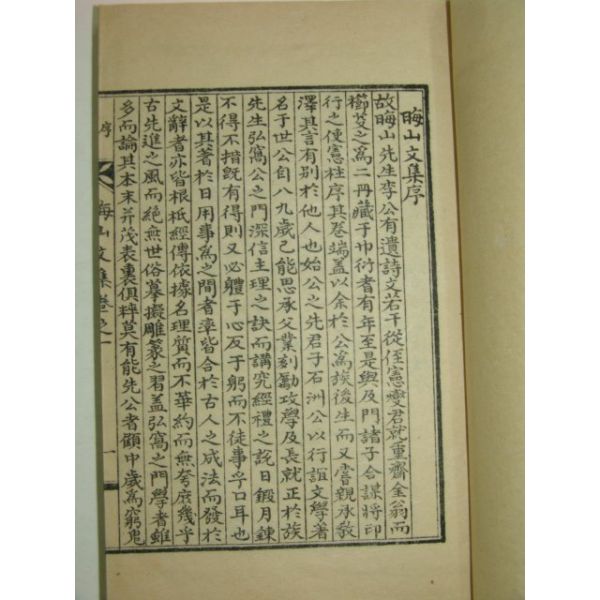 晦山文集序
故晦山先生李公有遺詩文若干從侄憲燮君就重齋金翁而
櫛芟之為二冊藏于巾衍者有年至是與及門諸子合謀將印
行之使憲柱序其卷端盖以余於公為族後生而又嘗親承敎
澤其言有別於他人也始公之先君子石洲公以行誼文學著
名于世公自八九歲已能思承父業刻勵攻學及長就正於族
先生弘窩公之門深信主理之訣而講究經禮之說日鍛月鍊
不得不措旣有得則又必軆于心反于躬而不徒事乎口耳也
是以其著於日用事為之間者率皆合於古人之成法而發於
文辭者亦皆根柢經傳依據名理質而不華約而無夸庶幾乎
古先進之風而絕無世俗摹擬雕篆之習盖弘窩之門學者雖
多而論其本末并茂表裏俱粹莫有能先公者顧中歲為窮鬼
晦山文集卷之一
序
一